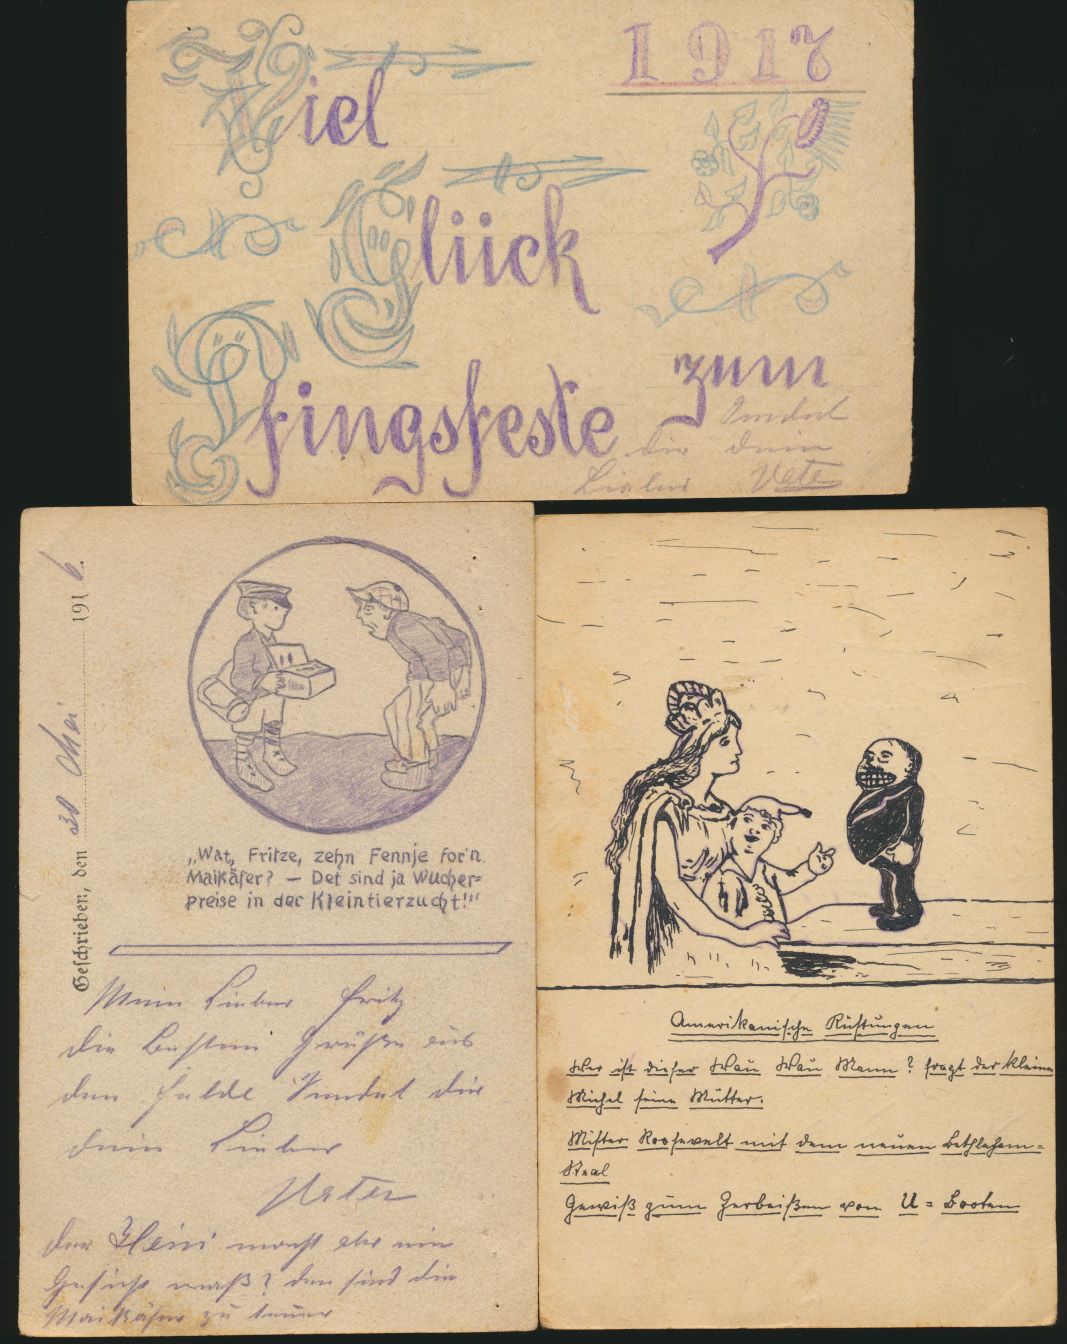 Viel
1917
Glück
zum
Pfingsfeste
sendet
dir dein
Lieber Vater
Geschrieben, den 30 Mai 1916.
„Wat, Fritze, zehn Fennje for'n
Maikäfer? — Det sind ja Wucher=
preise in der Kleintierzucht!"
Mein Lieber Fritz
die besten Grüße aus
dem Felde sendet dir
dein Lieber
Vater
der Heini macht aber ein
Gesicht waß? den sind die
Maikäfer zu teuer
Amerikanische Rüstungen
Wer ist dieser Wau Wau Mann? fragt der kleine
Michel seine Mutter.
Mister Roosevelt mit dem neuen Bethlehem=
Steal
Gewiß zum Zerbeißen von U=Booten